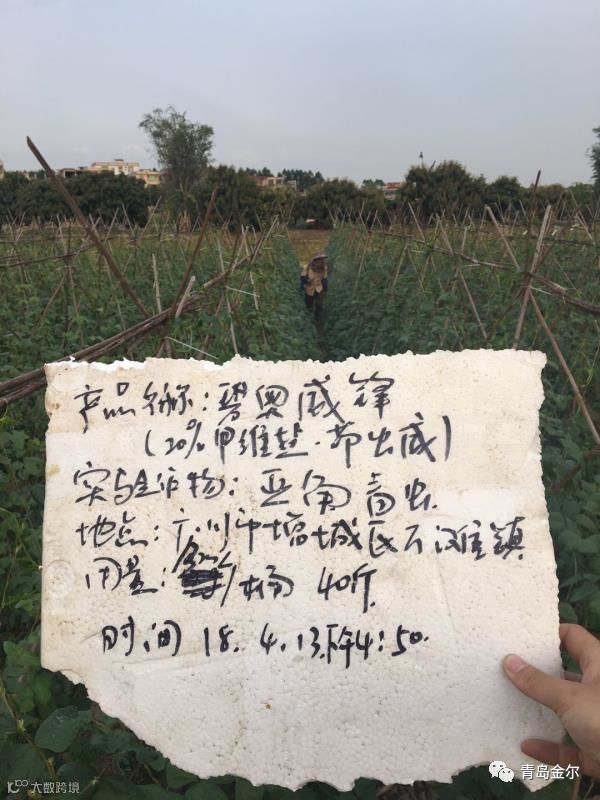 产品名称:碧奥威锋
(20%甲维盐·茚虫威)
实验作物:豆角青虫
地点:广州市增城区石滩镇
用量: /桶 40斤
时间 18.4.13.下午4:50.
大数跨境
青岛金尔